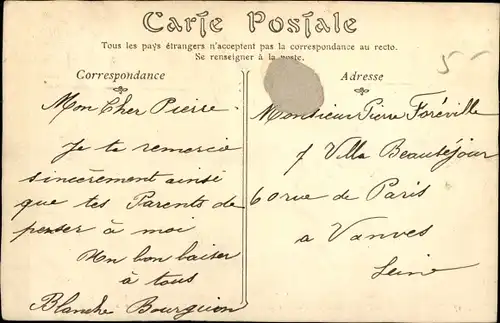 Carte Postale
Tous les pays étrangers n'acceptent pas la correspondance au recto.
Se renseigner à la poste.
Correspondance
Mon Cher Pierre
Je te remercie
sincèrement ainsi
que tes Parents de
penser à moi
Un bon baiser
à tous
Blanche Bourguion
Adresse
5
Monsieur Pierre Foréville
7 Villa Beauséjour
60 rue de Paris
a Vanves
Seine